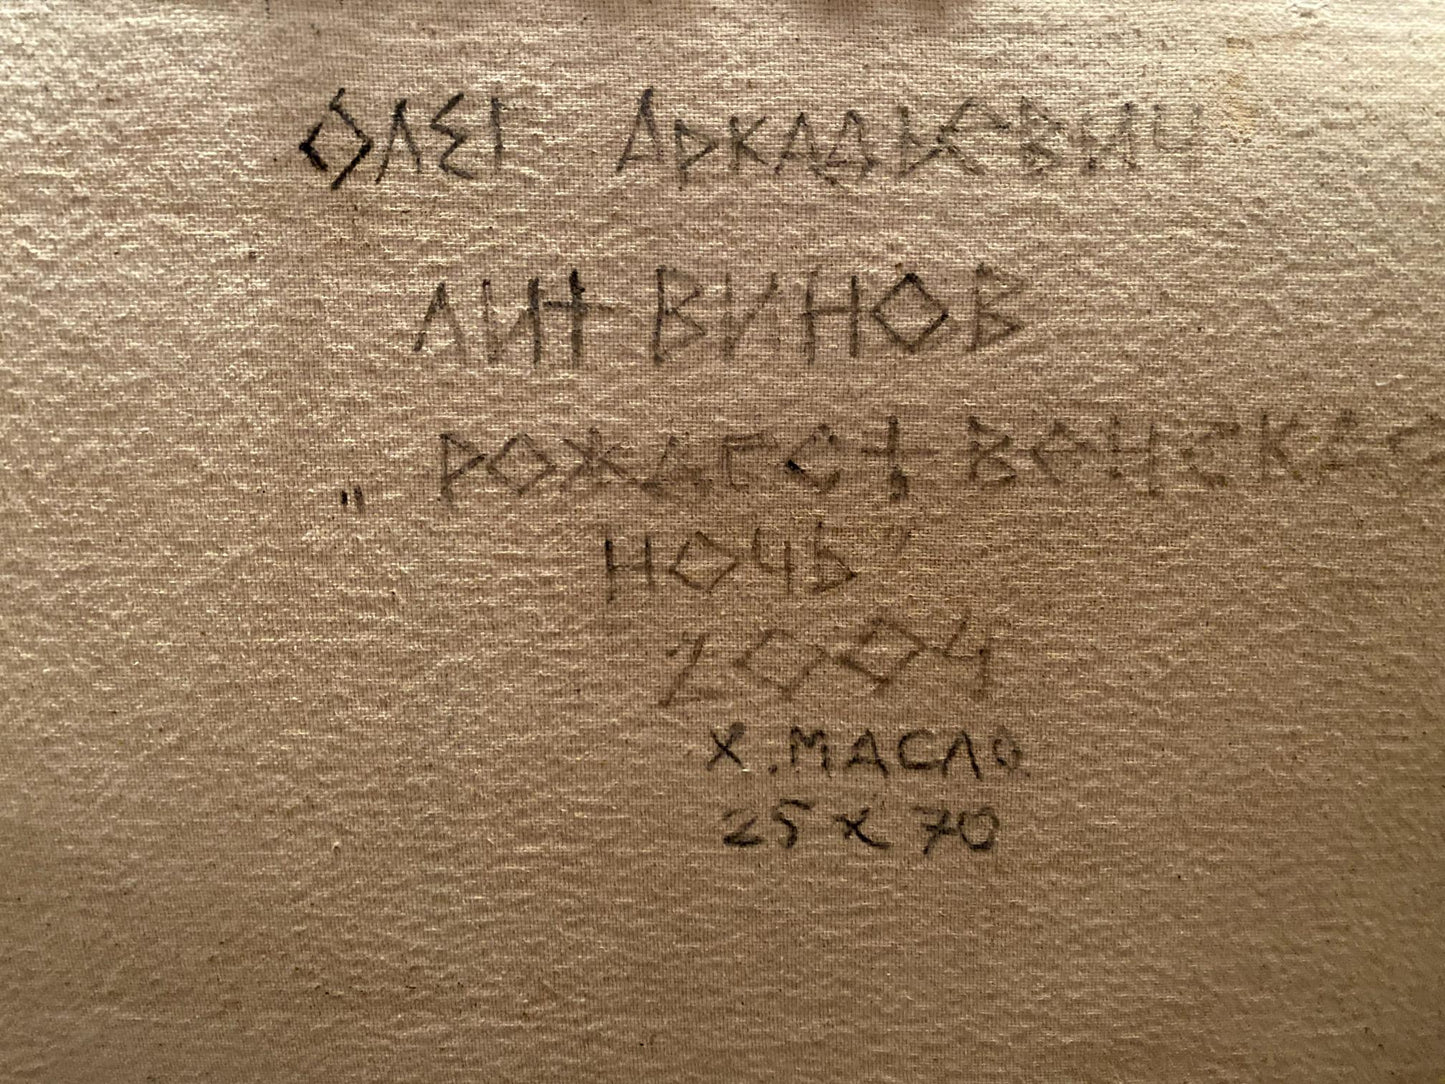 ОЛЕГ АРКАДЬЕВИЧ
ЛИТВИНОВ
„РОЖДЕСТВЕНСКАЯ
НОЧЬ”
2004
Х.МАСЛО
25 х 70